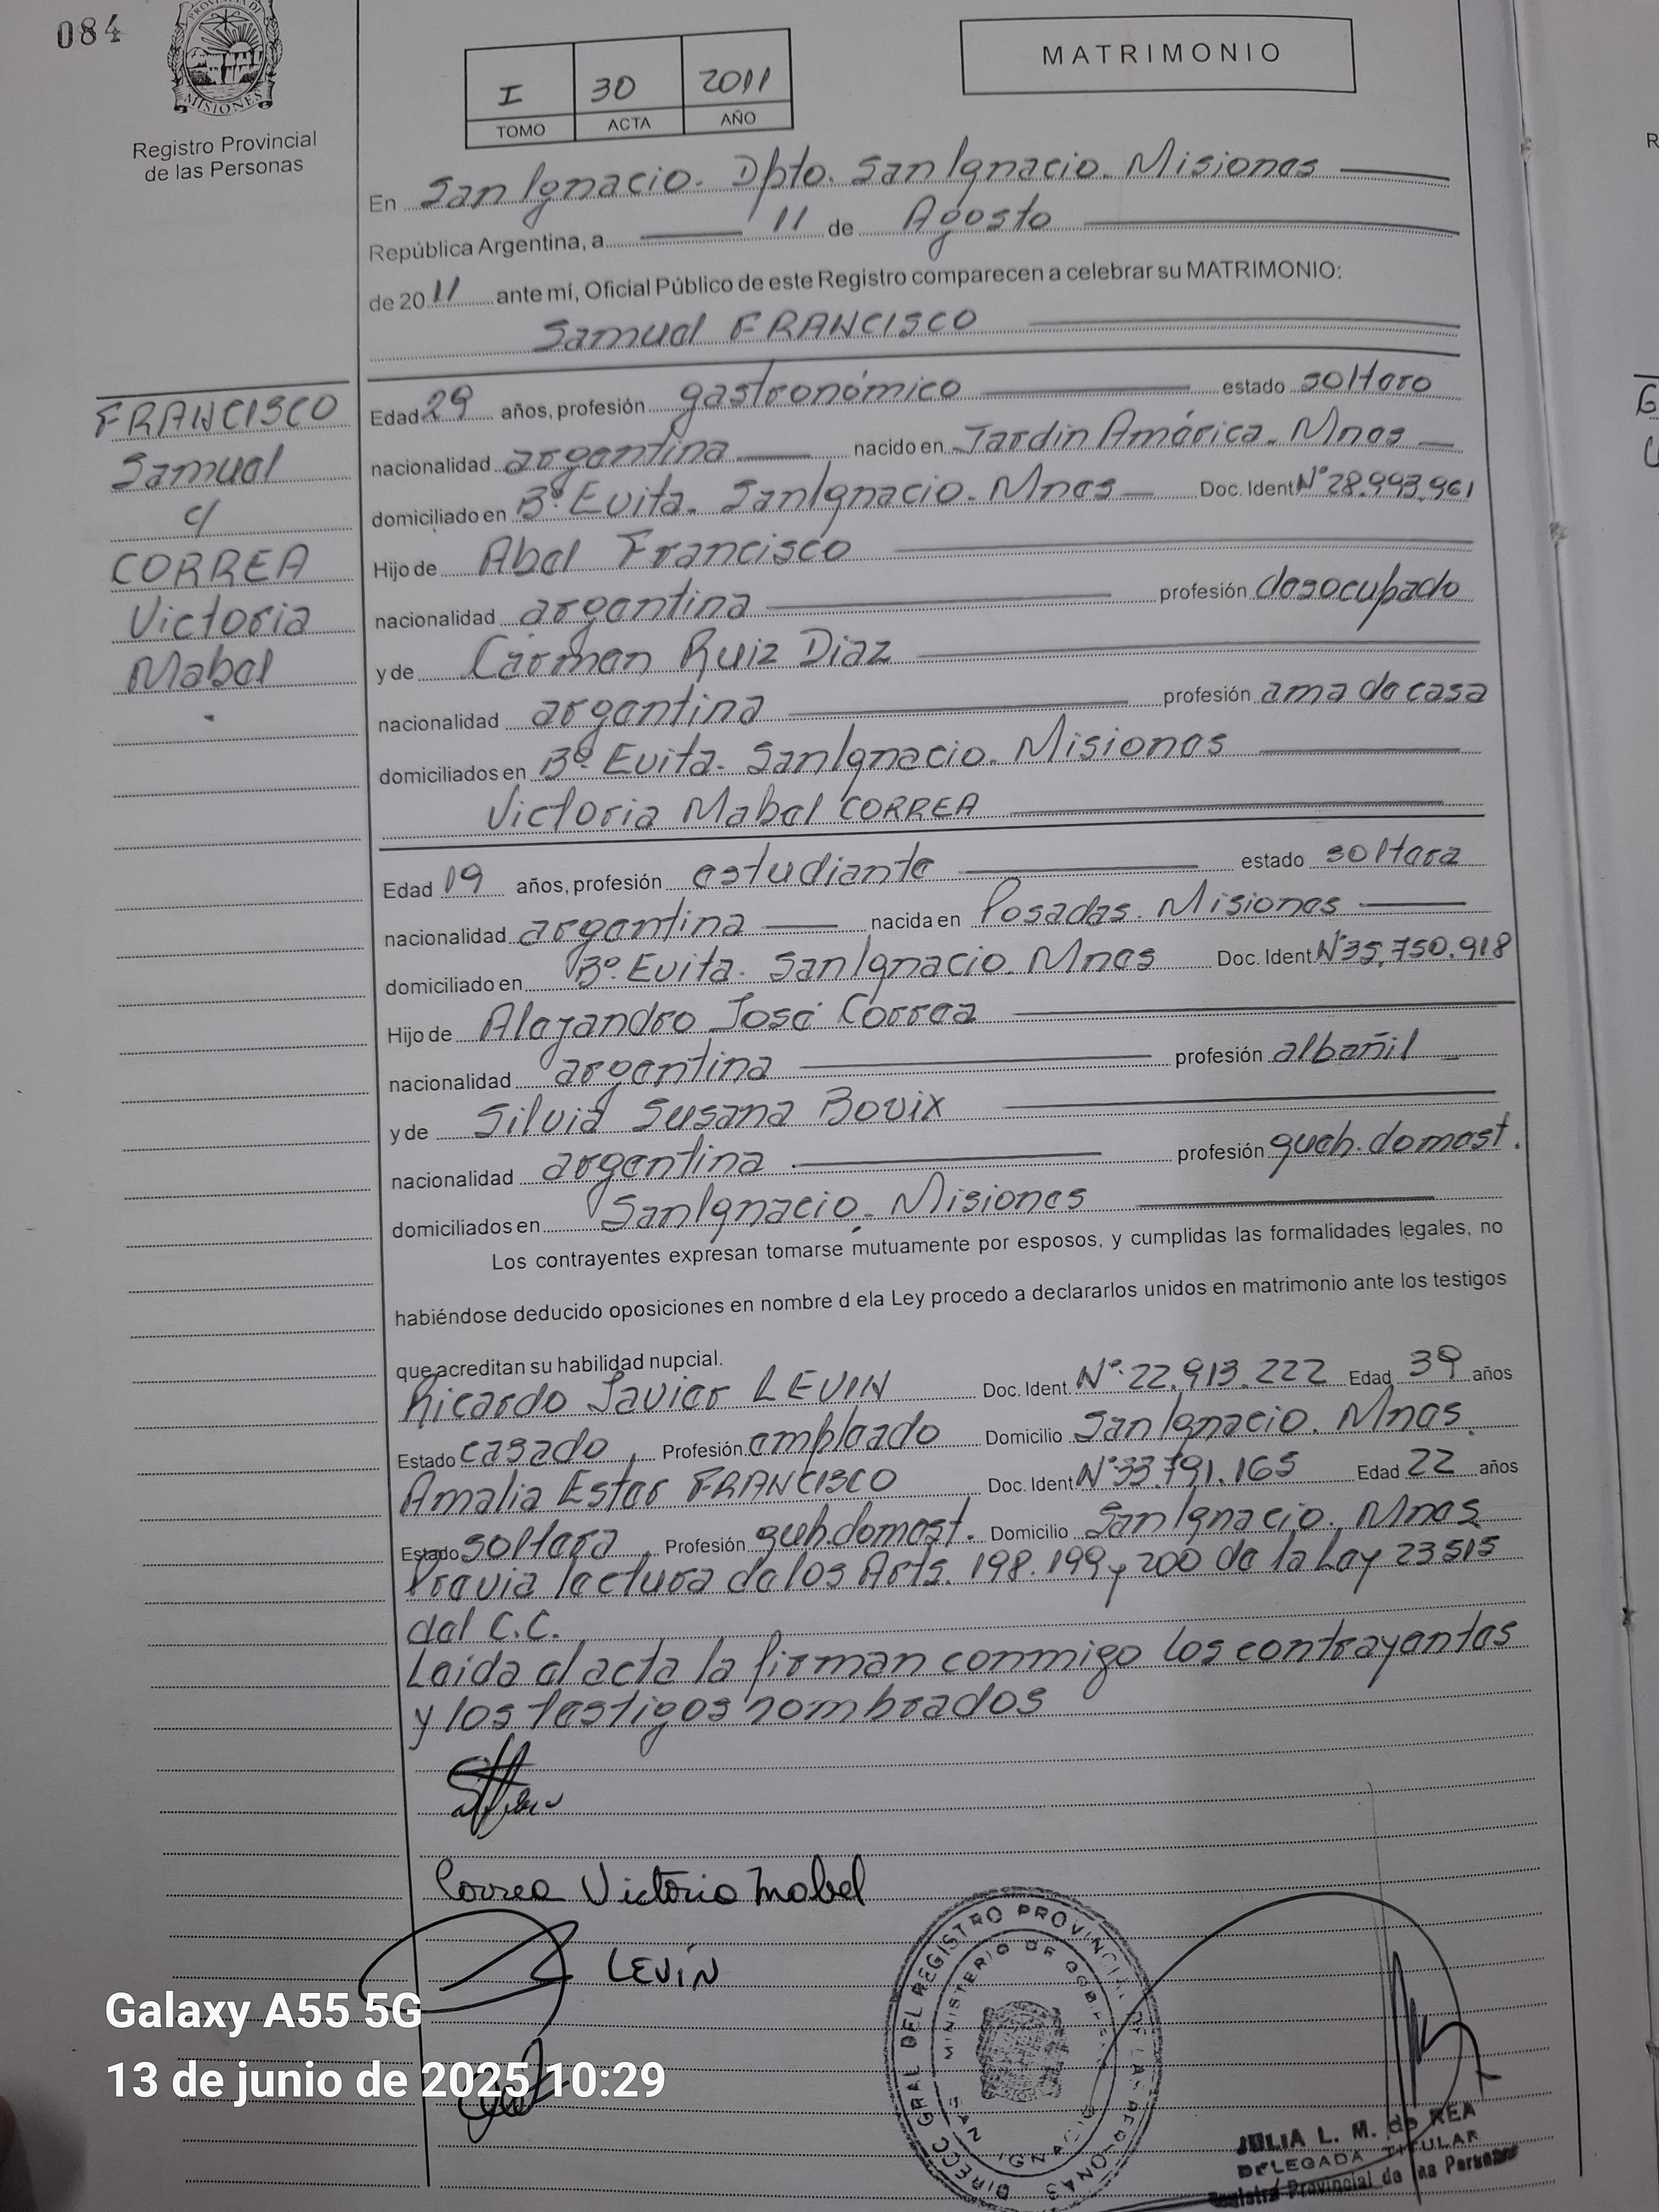 084
PROVINCIA DE
MISIONES
Registro Provincial
de las Personas
I 30 2011
TOMO ACTA AÑO
MATRIMONIO
En San Ignacio. Dpto. San Ignacio. Misiones
República Argentina, a 11 de Agosto
de 2011 ante mí, Oficial Público de este Registro comparecen a celebrar su MATRIMONIO:
Samuel FRANCISCO
FRANCISCO
Samuel
c/
CORREA
Victoria
Mabel
Edad 29 años, profesión gastronómico estado soltero
nacionalidad argentina nacido en Jardin América. Mnes
domiciliado en Bº. Evita. San Ignacio. Mnes Doc. Ident. Nº 28.993.961
Hijo de Abel Francisco
nacionalidad argentina profesión desocupado
y de Carmen Ruiz Diaz
nacionalidad argentina profesión ama de casa
domiciliados en Bº. Evita. San Ignacio. Misiones
Victoria Mabel CORREA
Edad 19 años, profesión estudiante estado soltera
nacionalidad argentina nacida en Posadas. Misiones
domiciliado en Bº. Evita. San Ignacio. Mnes Doc. Ident. Nº 35.750.918
Hijo de Alejandro José Correa
nacionalidad argentina profesión albañil
y de Silvia Susana Bovix
nacionalidad argentina profesión queh. domest.
domiciliados en San Ignacio. Misiones
Los contrayentes expresan tomarse mutuamente por esposos, y cumplidas las formalidades legales, no
habiéndose deducido oposiciones en nombre d ela Ley procedo a declararlos unidos en matrimonio ante los testigos
que acreditan su habilidad nupcial.
Ricardo Javier LEVIN Doc. Ident. Nº 22.913.222 Edad 39 años
Estado casado, Profesión empleado Domicilio San Ignacio. Mnes.
Amalia Ester FRANCISCO Doc. Ident. Nº 33.791.165 Edad 22 años
Estado soltera, Profesión queh. domest. Domicilio San Ignacio. Mnes
Previa lectura de los Arts. 198. 199 y 200 de la Ley 23515
del C.C.
Leida el acta la firman conmigo los contrayentes
y los testigos nombrados
Correa Victoria Mabel
LEVÍN
DIRECC GRAL DEL REGISTRO PROVINCIAL DE LAS PERSONAS
MINISTERIO DE GOBIERNO
SAN IGNACIO
JULIA L. M. de REA
DELEGADA TITULAR
Registro Provincial de las Personas
Galaxy A55 5G
13 de junio de 2025 10:29